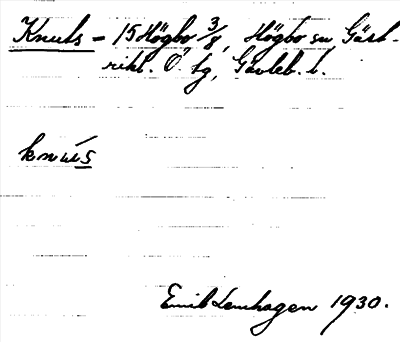 Knuts – 15 Högbo 3/8, Högbo sn, Gäst-
rikl. Ö. tg, Gävleb. l.
knu̇s
Emil Lenhagen 1930.